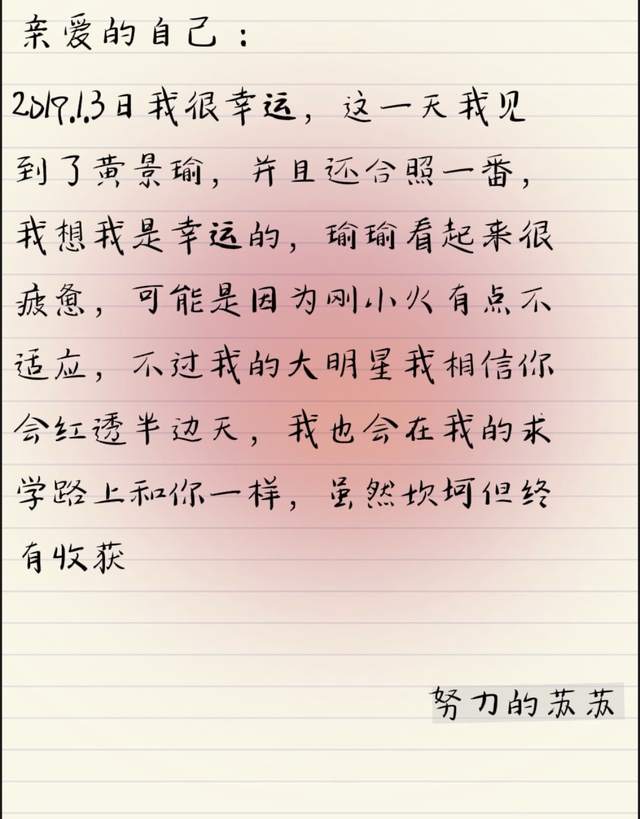 亲爱的自己：
2019.1.3日我很幸运，这一天我见
到了黄景瑜，并且还合照一番，
我想我是幸运的，瑜瑜看起来很
疲惫，可能是因为刚小火有点不
适应，不过我的大明星我相信你
会红透半边天，我也会在我的求
学路上和你一样，虽然坎坷但终
有收获
努力的苏苏